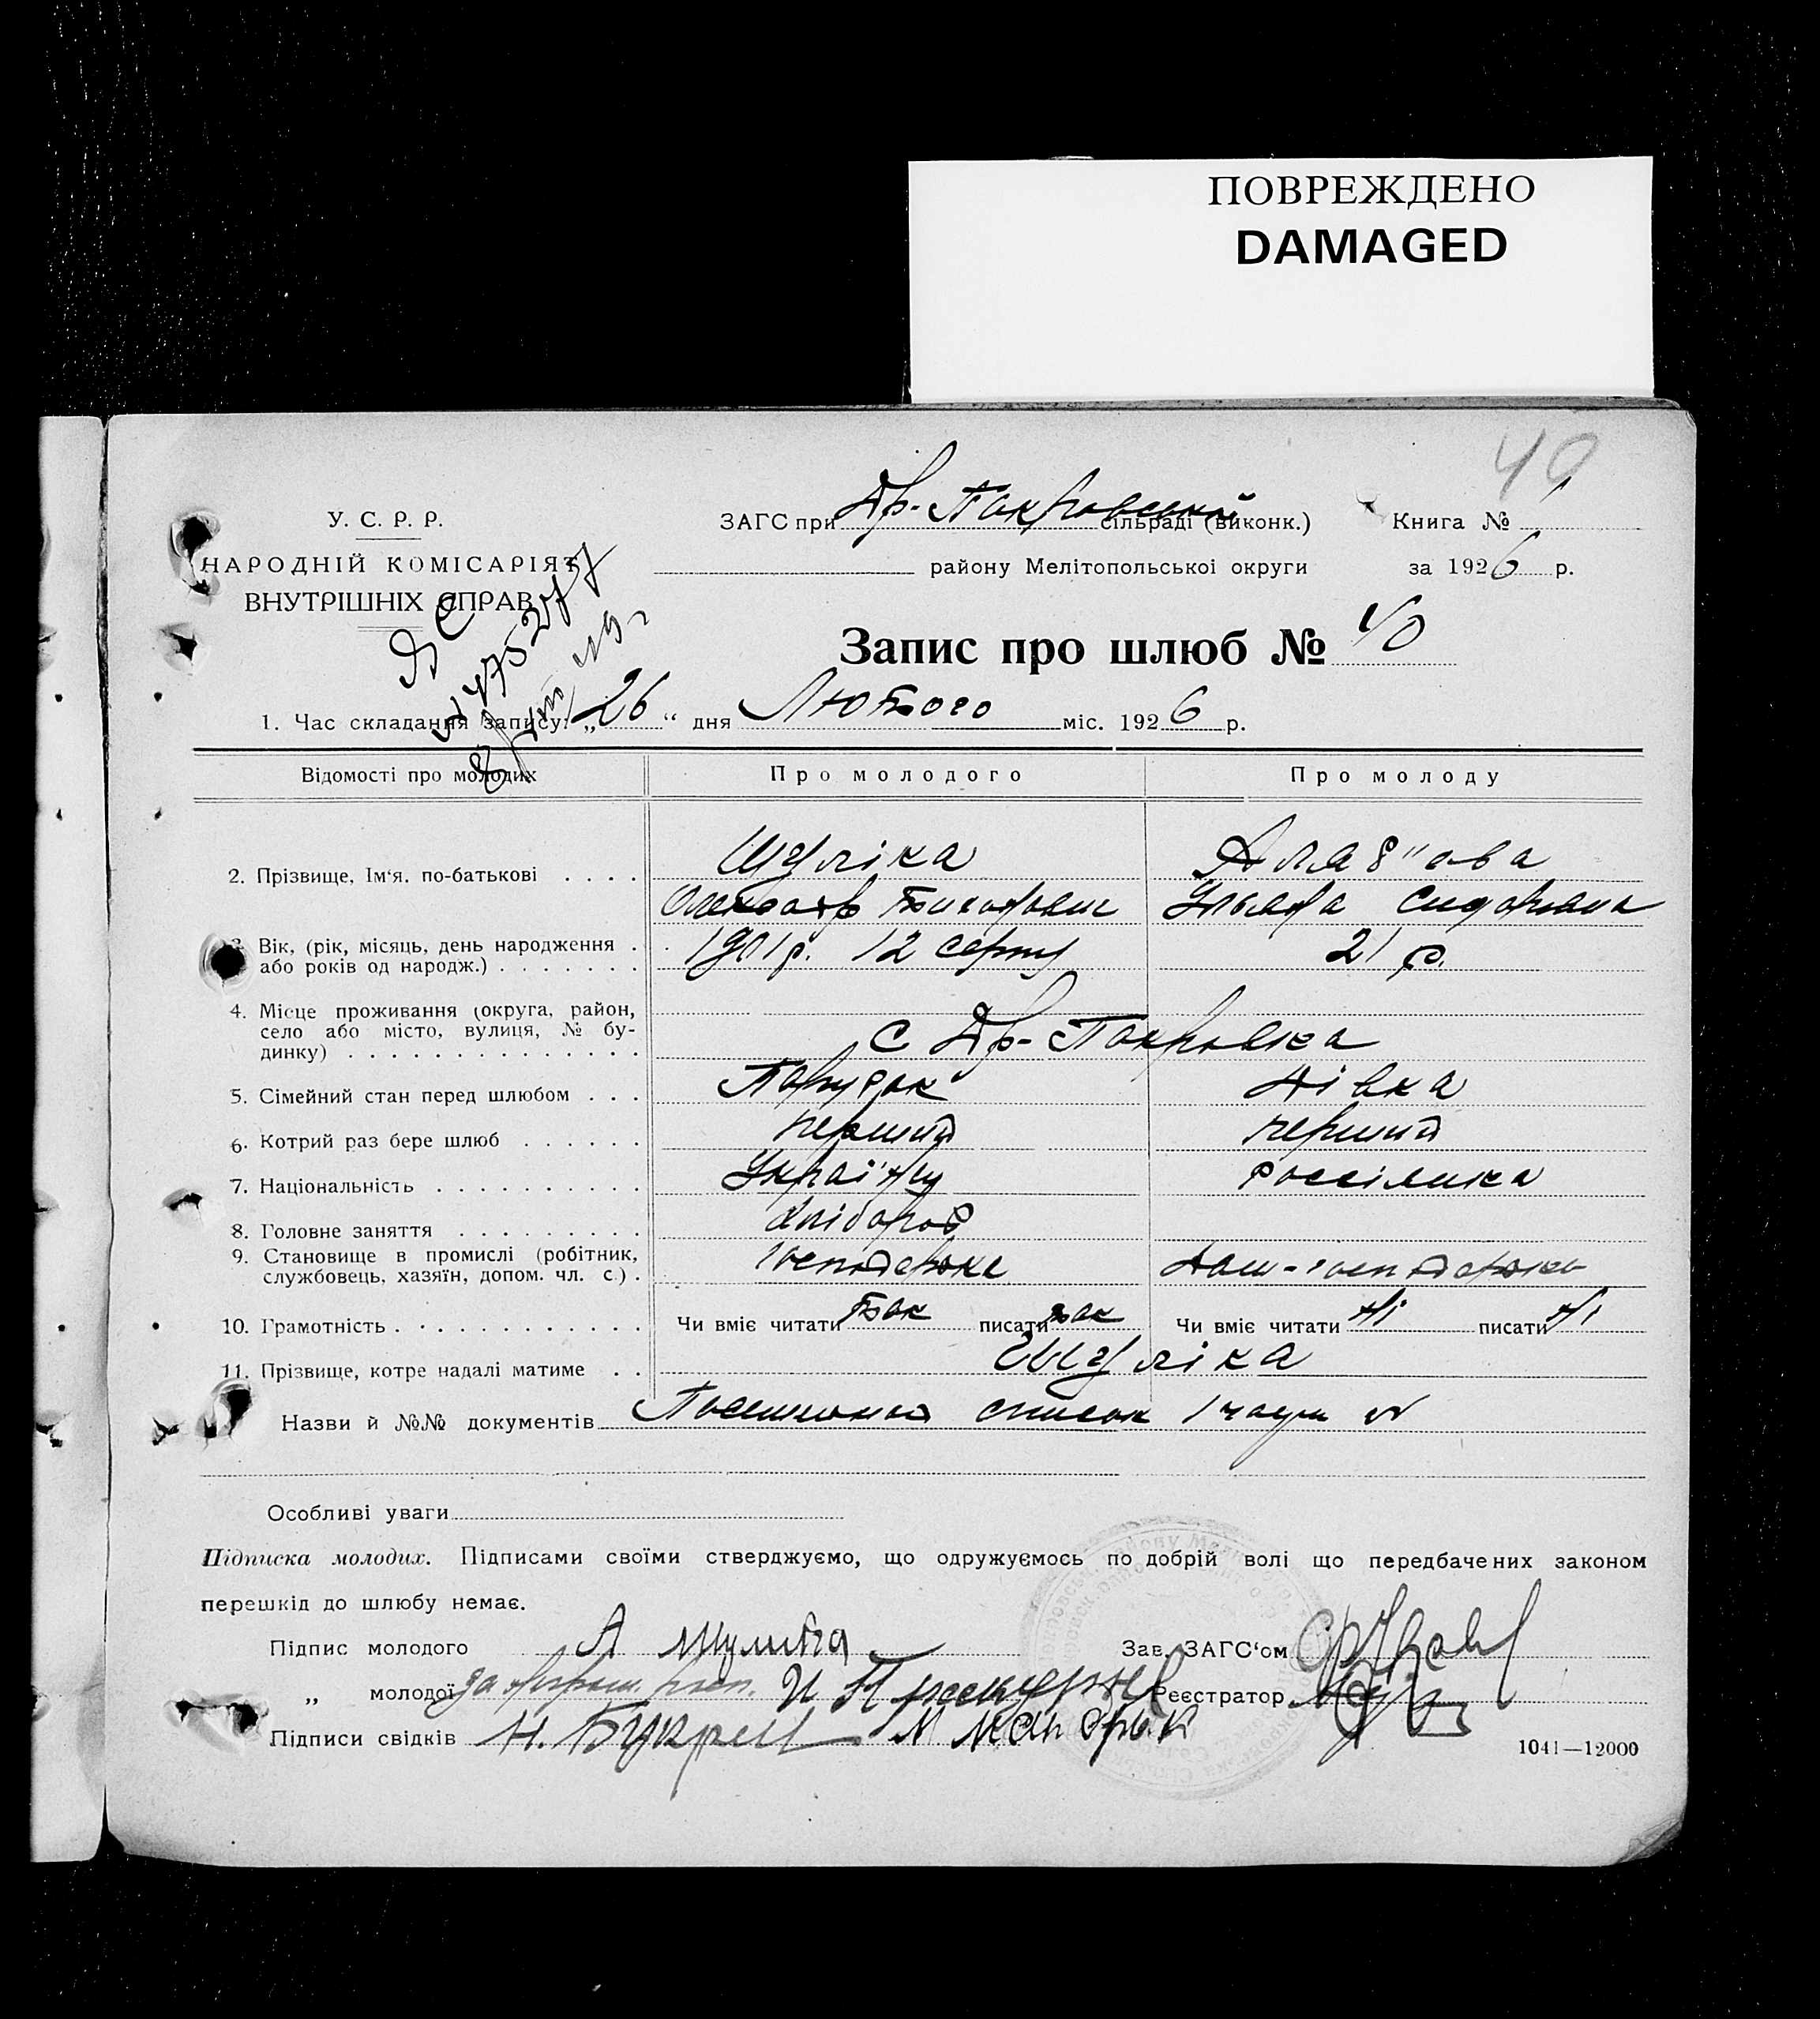 ПОВРЕЖДЕНО
DAMAGED
40
У. С. Р. Р.
НАРОДНІЙ КОМІСАРІЯТ
ВНУТРІШНІХ СПРАВ
ЗАГС при Др-Покровській сільраді (виконк.)
Книга №
району Мелітопольської округи
за 1926 р.
Запис про шлюб № 40
1. Час складання запису: „26“ дня Лютого міс. 1926 р.
Відомості про молодих
Про молодого
Про молоду
2. Прізвище, Ім‘я, по-батькові . . . .
Шуліка
Олександр
Сидоровна
3. Вік, (рік, місяць, день народження .
або років од народж.) . . . . . . .
1901 р. 12 серпня
21 р.
4. Місце проживання (округа, район,
село або місто, вулиця, № бу-
динку) . . . . . . . . . . . . . .
с Др-Покровка
5. Сімейний стан перед шлюбом . . .
Парубок
Дівка
6. Котрий раз бере шлюб . . . . . .
перший
перший
7. Національність . . . . . . . . . .
Українец
8. Головне заняття . . . . . . . . .
хлібороб
9. Становище в промислі (робітник,
службовець, хазяїн, допом. чл. с.) .
10. Грамотність . . . . . . . . . . . .
Чи вміє читати так писати так
Чи вміє читати ні писати ні
11. Прізвище, котре надалі матиме . .
Шуліка
Назви й №№ документів список №
Особливі уваги
Підписка молодих. Підписами своїми стверджуємо, що одружуємось по добрій волі що передбачених законом
перешкід до шлюбу немає.
Підпис молодого А Шулика
Зав. ЗАГС‘ом
„ молодої
Реєстратор
Підписи свідків Н. Букреев
1041—12000